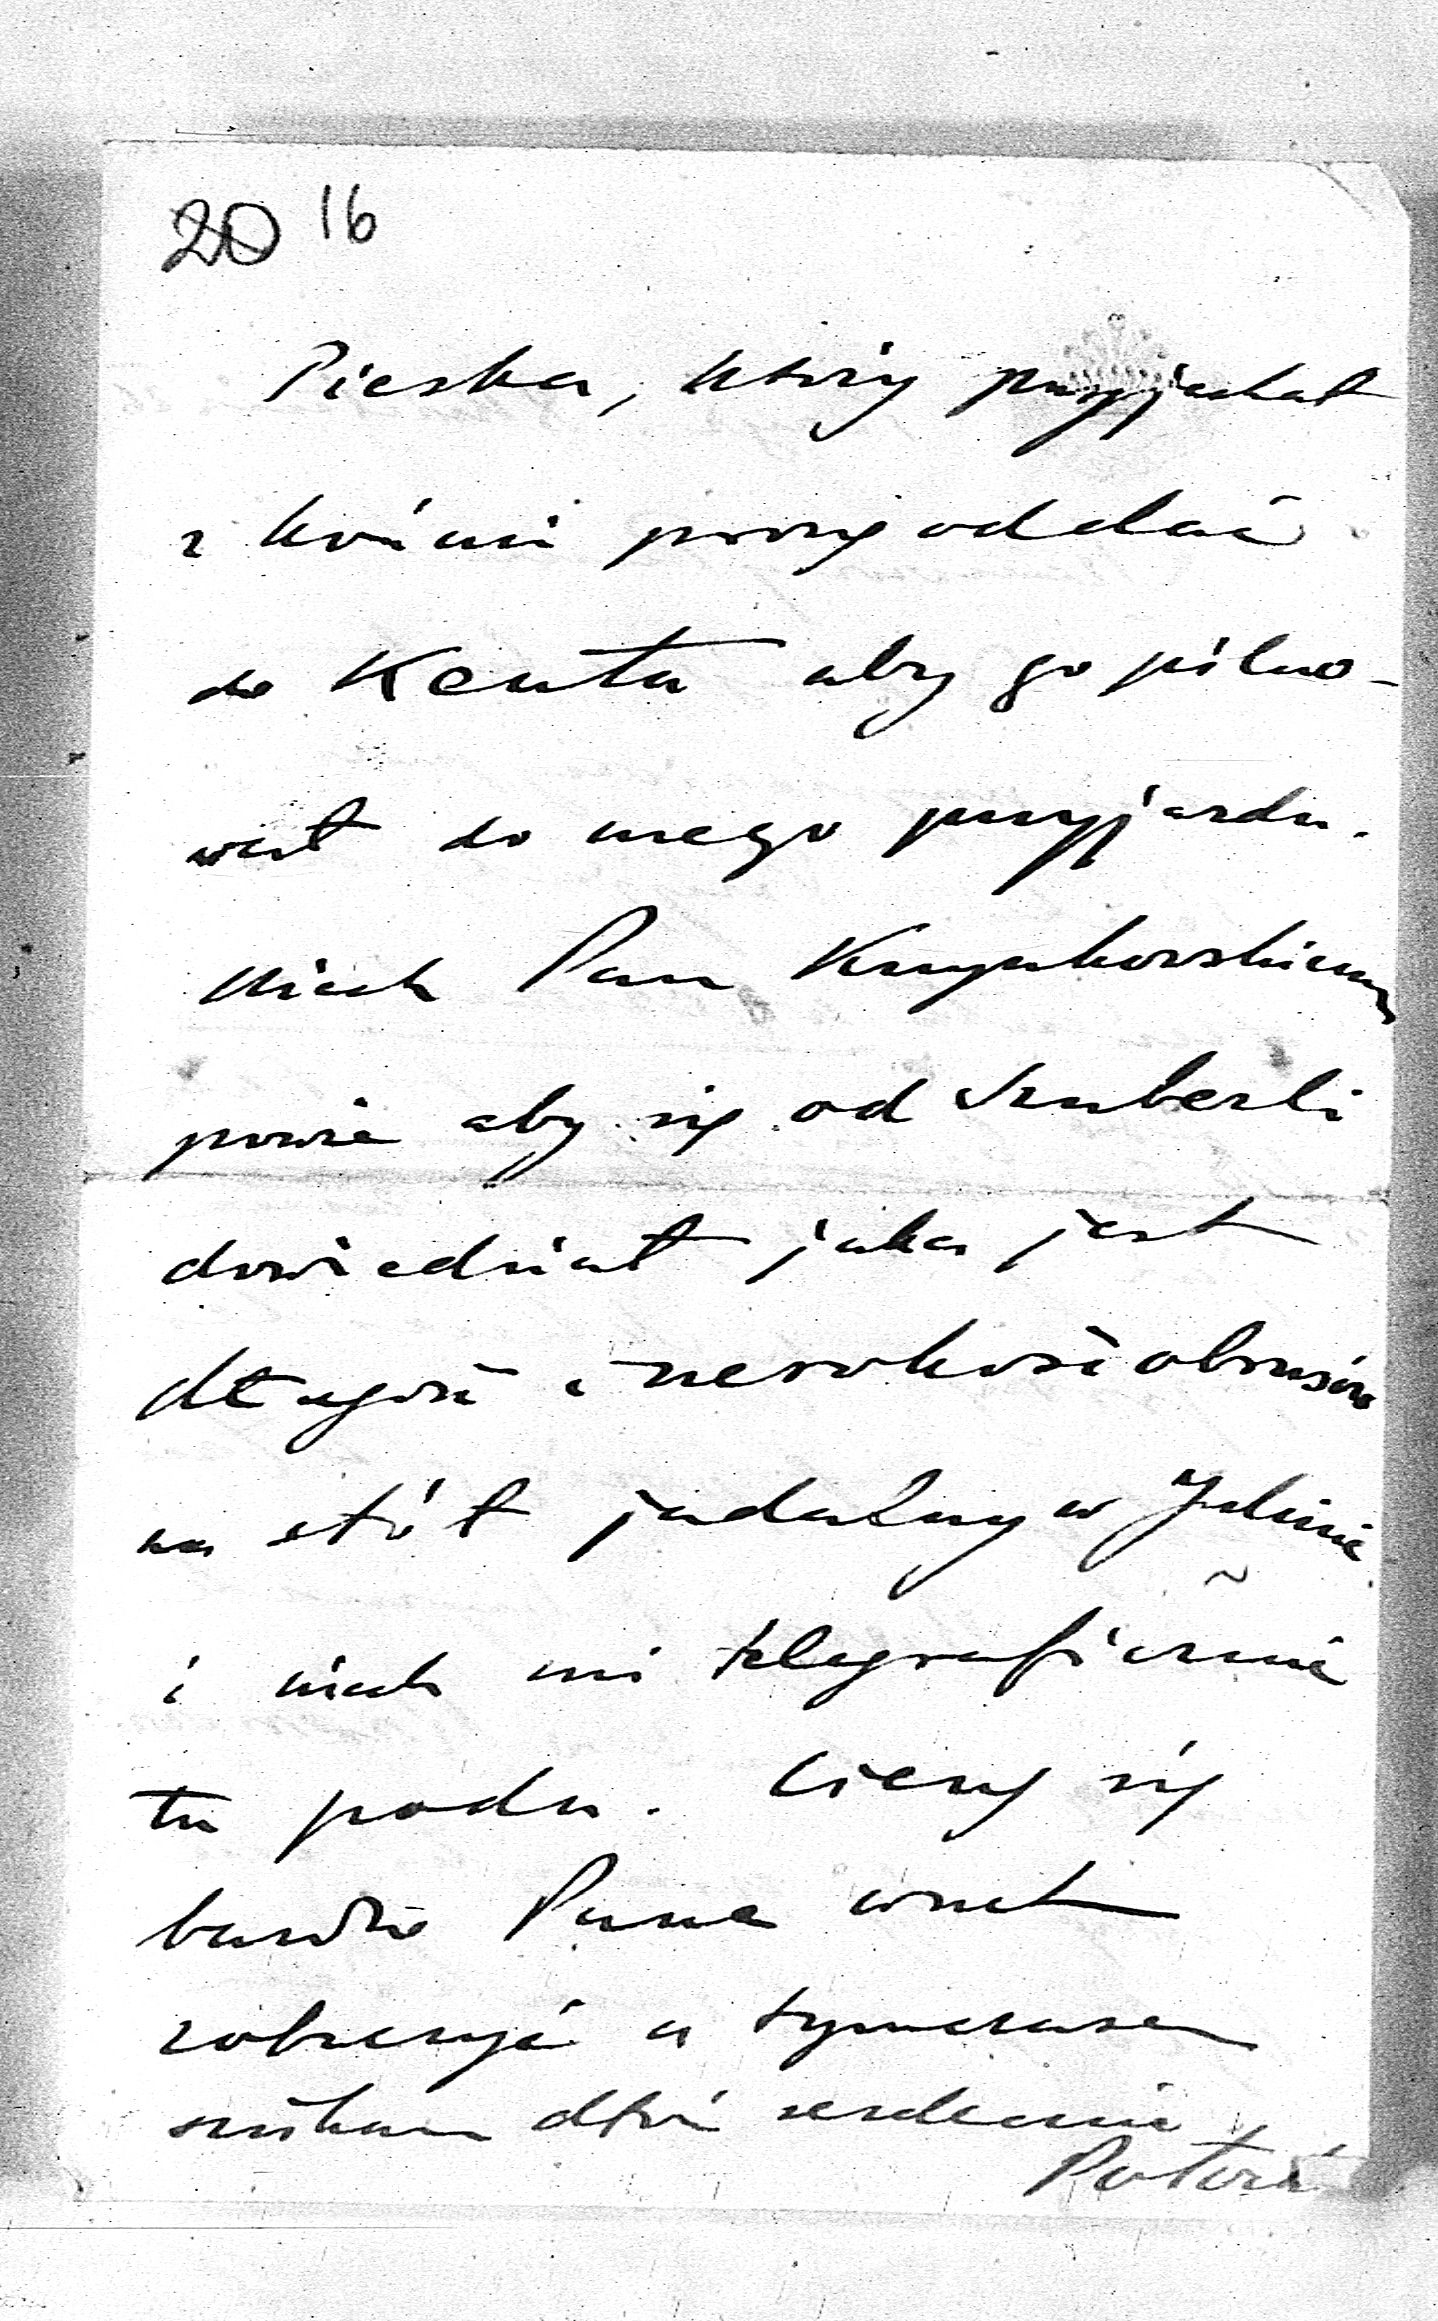 20 16
Pieska, który przyjechał
z końmi proszę oddać
do Kenta aby go pilno-
wał do mego przyjazdu.
Niech Pan Krzyukowskiemu
powie aby się od Szuberli
dowiedział jaka jest
długość i szerokość obrusów
na stół jadalny w Julinie
i niech mi telegraficznie
tu poda. Cieszę się
bardzo Pana wnet
zobaczyć a tymczasem
ściskam dłoń serdecznie
Potocki